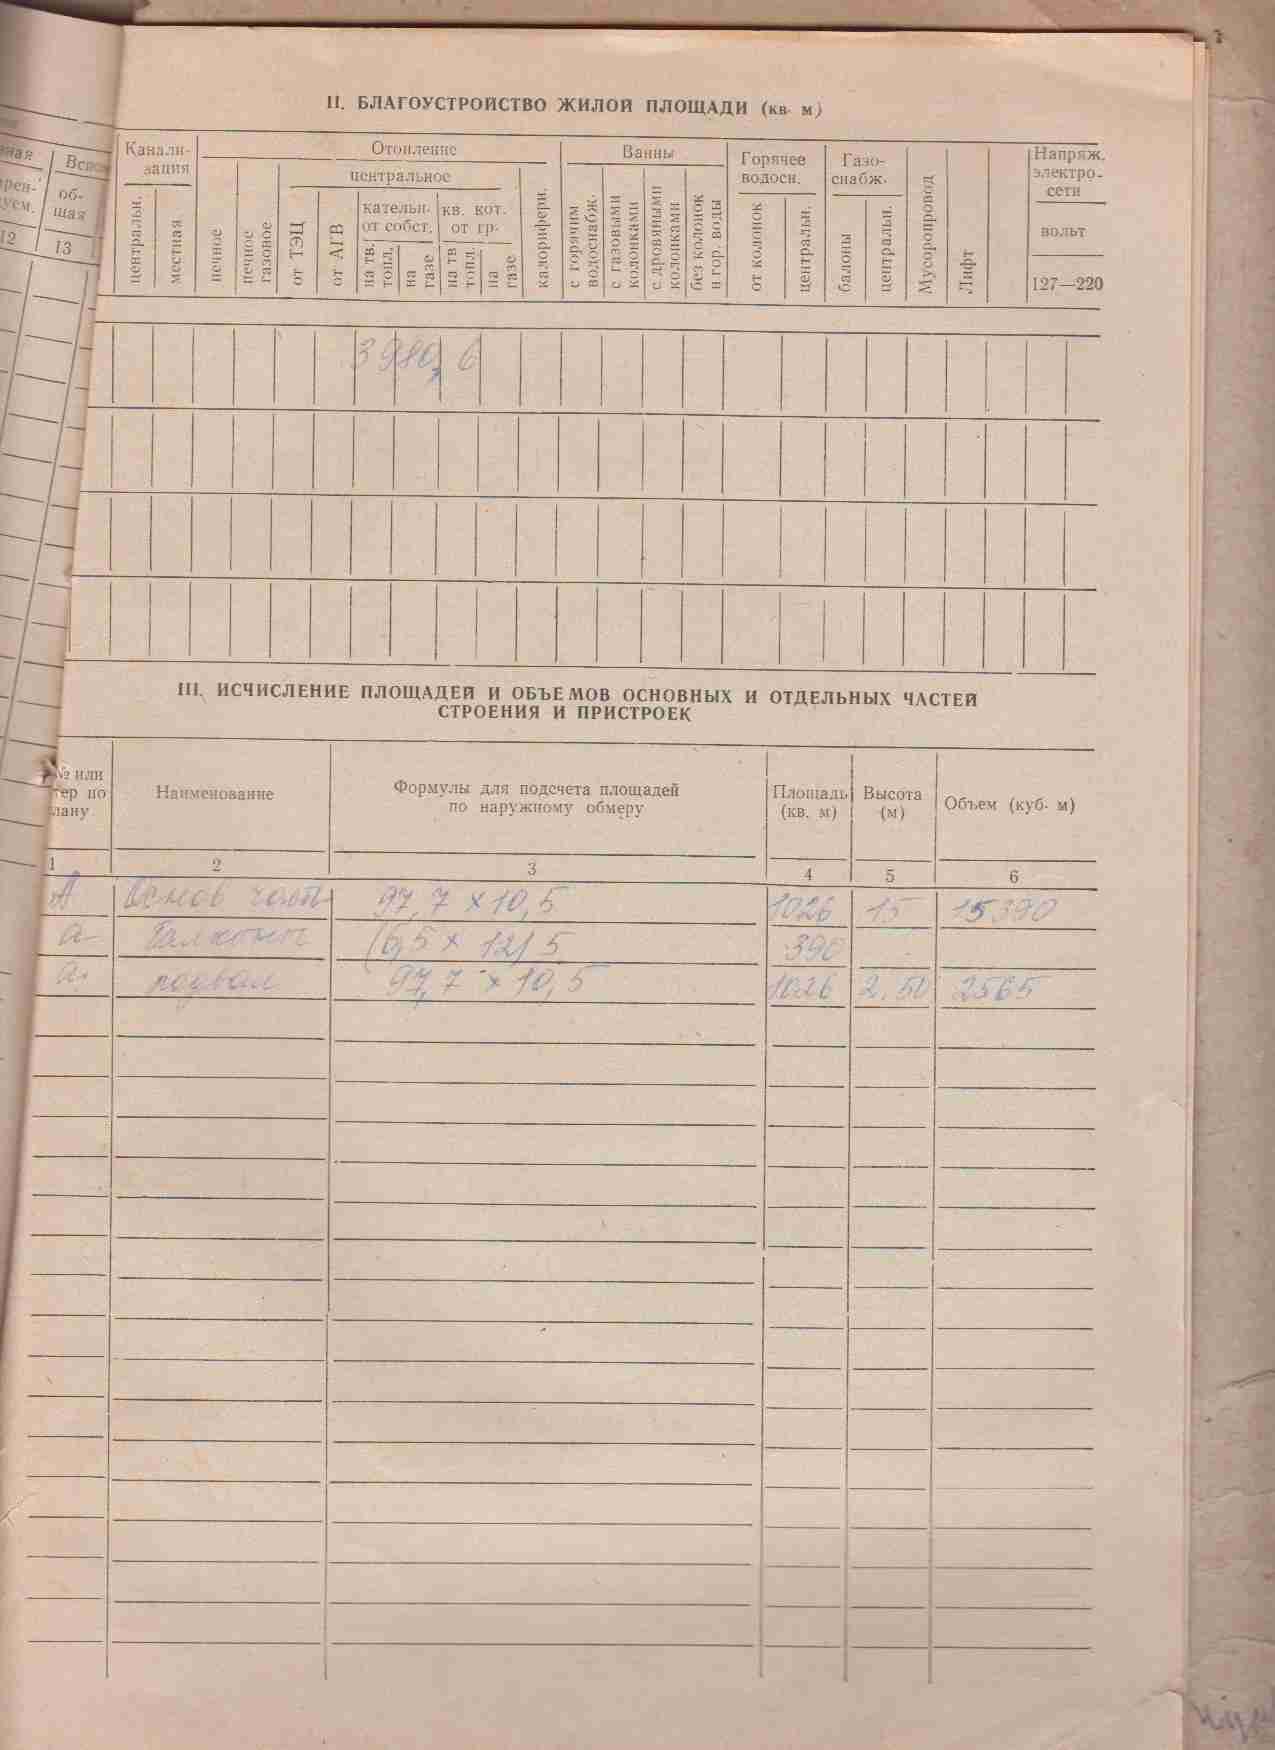 II. БЛАГОУСТРОЙСТВО ЖИЛОЙ ПЛОЩАДИ (кв. м)
Канали-
зация
Отопление
Ванны
Горячее
водосн.
Газо-
снабж.
Мусоропровод
Лифт
Напряж.
электро-
сети
центральн.
местная
печное
печное
газовое
центральное
от ТЭЦ
от АГВ
кательн.
от собст.
на тв.
топл.
на
газе
кв. кот.
от гр.
на тв
топл.
на
газе
калорифери.
с горячим
водоснабж.
с газовыми
колонками
с дровяными
колонками
без колонок
и гор. воды
от колонок
центральн.
балоны
центральн.
вольт
127—220
об-
щая
12
13
3980,6
III. ИСЧИСЛЕНИЕ ПЛОЩАДЕЙ И ОБЪЕМОВ ОСНОВНЫХ И ОТДЕЛЬНЫХ ЧАСТЕЙ
СТРОЕНИЯ И ПРИСТРОЕК
№ или
тер по
лану
Наименование
Формулы для подсчета площадей
по наружному обмеру
Площадь
(кв. м)
Высота
(м)
Объем (куб. м)
1 2 3 4 5 6
А Основ част. 97,7 × 10,5 1026 15 15390
а балконы (6,5 × 12) 5 390
а. подвал 97,7 × 10,5 1026 2.50 2565